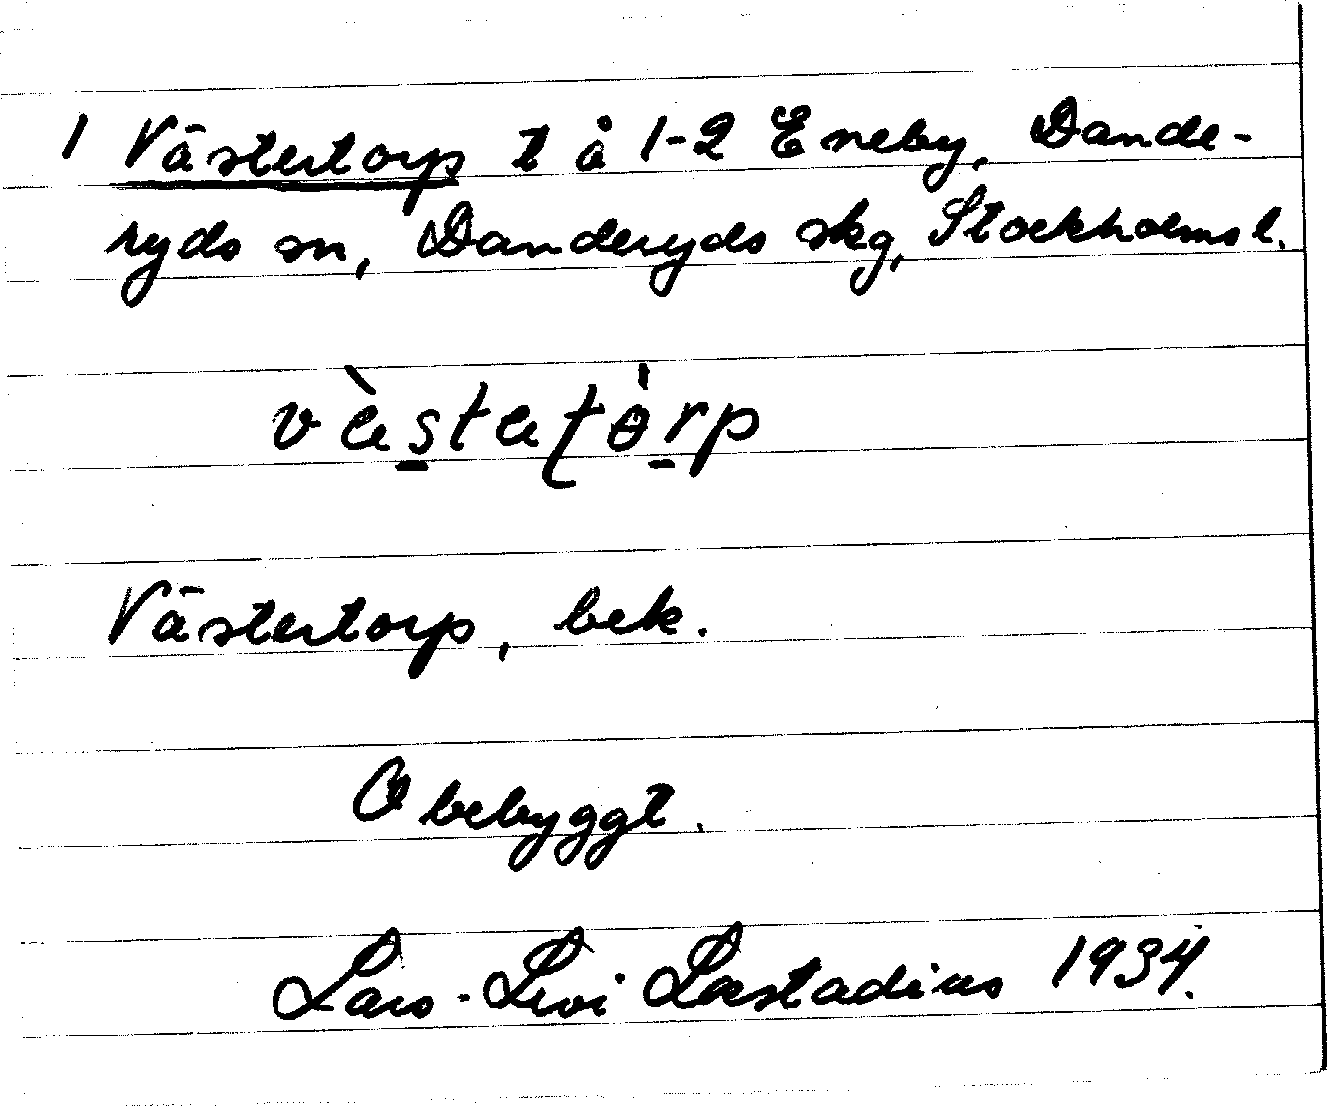 1 Västertorp t å 1-2 Eneby, Dande-
ryds sn, Danderyds skg, Stockholms l.
vàstatɵ̀rp
Västertorp, bek.
Obebyggt.
Lars-Levi Læstadius 1934.